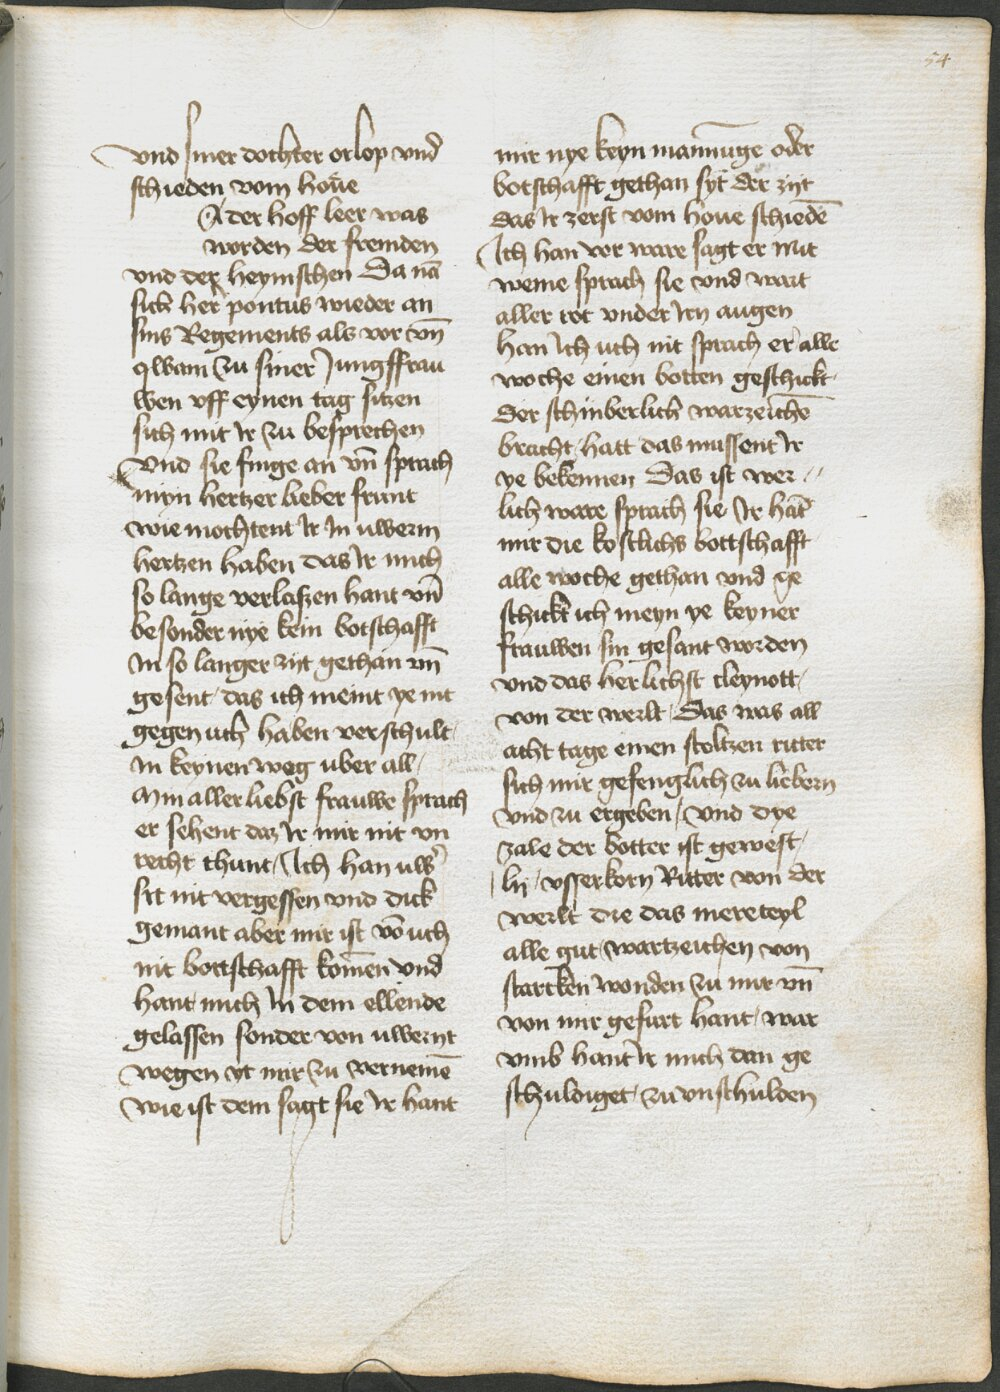 54
vnd siner dochter orlop vnd
schieden vom houe
A der hoff leer was
worden der fremden
vnd der heymschen Da nā
sich her pontus wieder an
sins Regements als vor vn̄
qwam zu siner Jungffrau
wen vff eynen tag sitzen
sich mit Ir zu besprechen
Vnd sie finge an vn̄ sprach
myn hertzer lieber frunt
wie mochtent Ir In uwerm
hertzen haben das Ir mich
so lange verlaszen hant vn̄
besonder nye kein botschafft
In so langer zijt gethan vn̄
gesent / das ich meint ye nit
gegen uch haben verschult /
In keynen weg uber all /
Min aller liebst frauwe sprach
er sehent daz Ir mir nit vn
recht thunt / Ich han uw̄
sit nit vergessen vnd dick
gemant aber mir ist vō uch
nit bottschafft komen vnd
hant mich In dem ellende
gelassen sonder von uwernt
wegen yt mir zu vernemē
wie ist dem sagt sie Ir hant
mir nye keyn mannūge oder
botschafft gethan syt der zijt
das Ir zerst vom houe schiedē
Ich han vor ware sagt er mit
weme sprach sie vnd wart
aller rot vnder Irn augen
Han Ich uch nit sprach er alle
woche einen botten geschickt /
der schinberlich warzeichē
bracht hatt das mussent Ir
ye bekennen Das ist wer //
lich ware sprach sie Ir hāt
mir die kostlichs bottschafft
alle woche gethan vnd ge
schickt ich meyn ye keyner
frauwen sin gesant worden
vnd das herlichst cleynott /
von der werlt / Das was all
acht tage einen stoltzen ritter
sich mir gefenglich zu liebern
vnd zu ergeben / vnd dye
zale der botter ist gewest /
lij / vsserkorn Ritter von der
werlt die das mereteyl
alle gut wartzeichen von
starcken wonden zu mir vn̄
von mir gefurt hant / war
vmb hant Ir mich dan ge
schuldiget / zu vnschulden